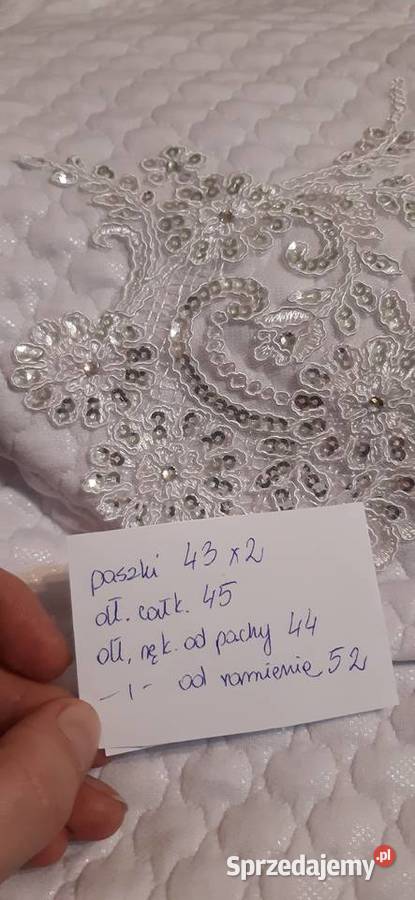 paszki 43 x 2
dł. całk. 45
dł. ręk. od pachy 44
- ı - od ramienia 52
Sprzedajemy.pl